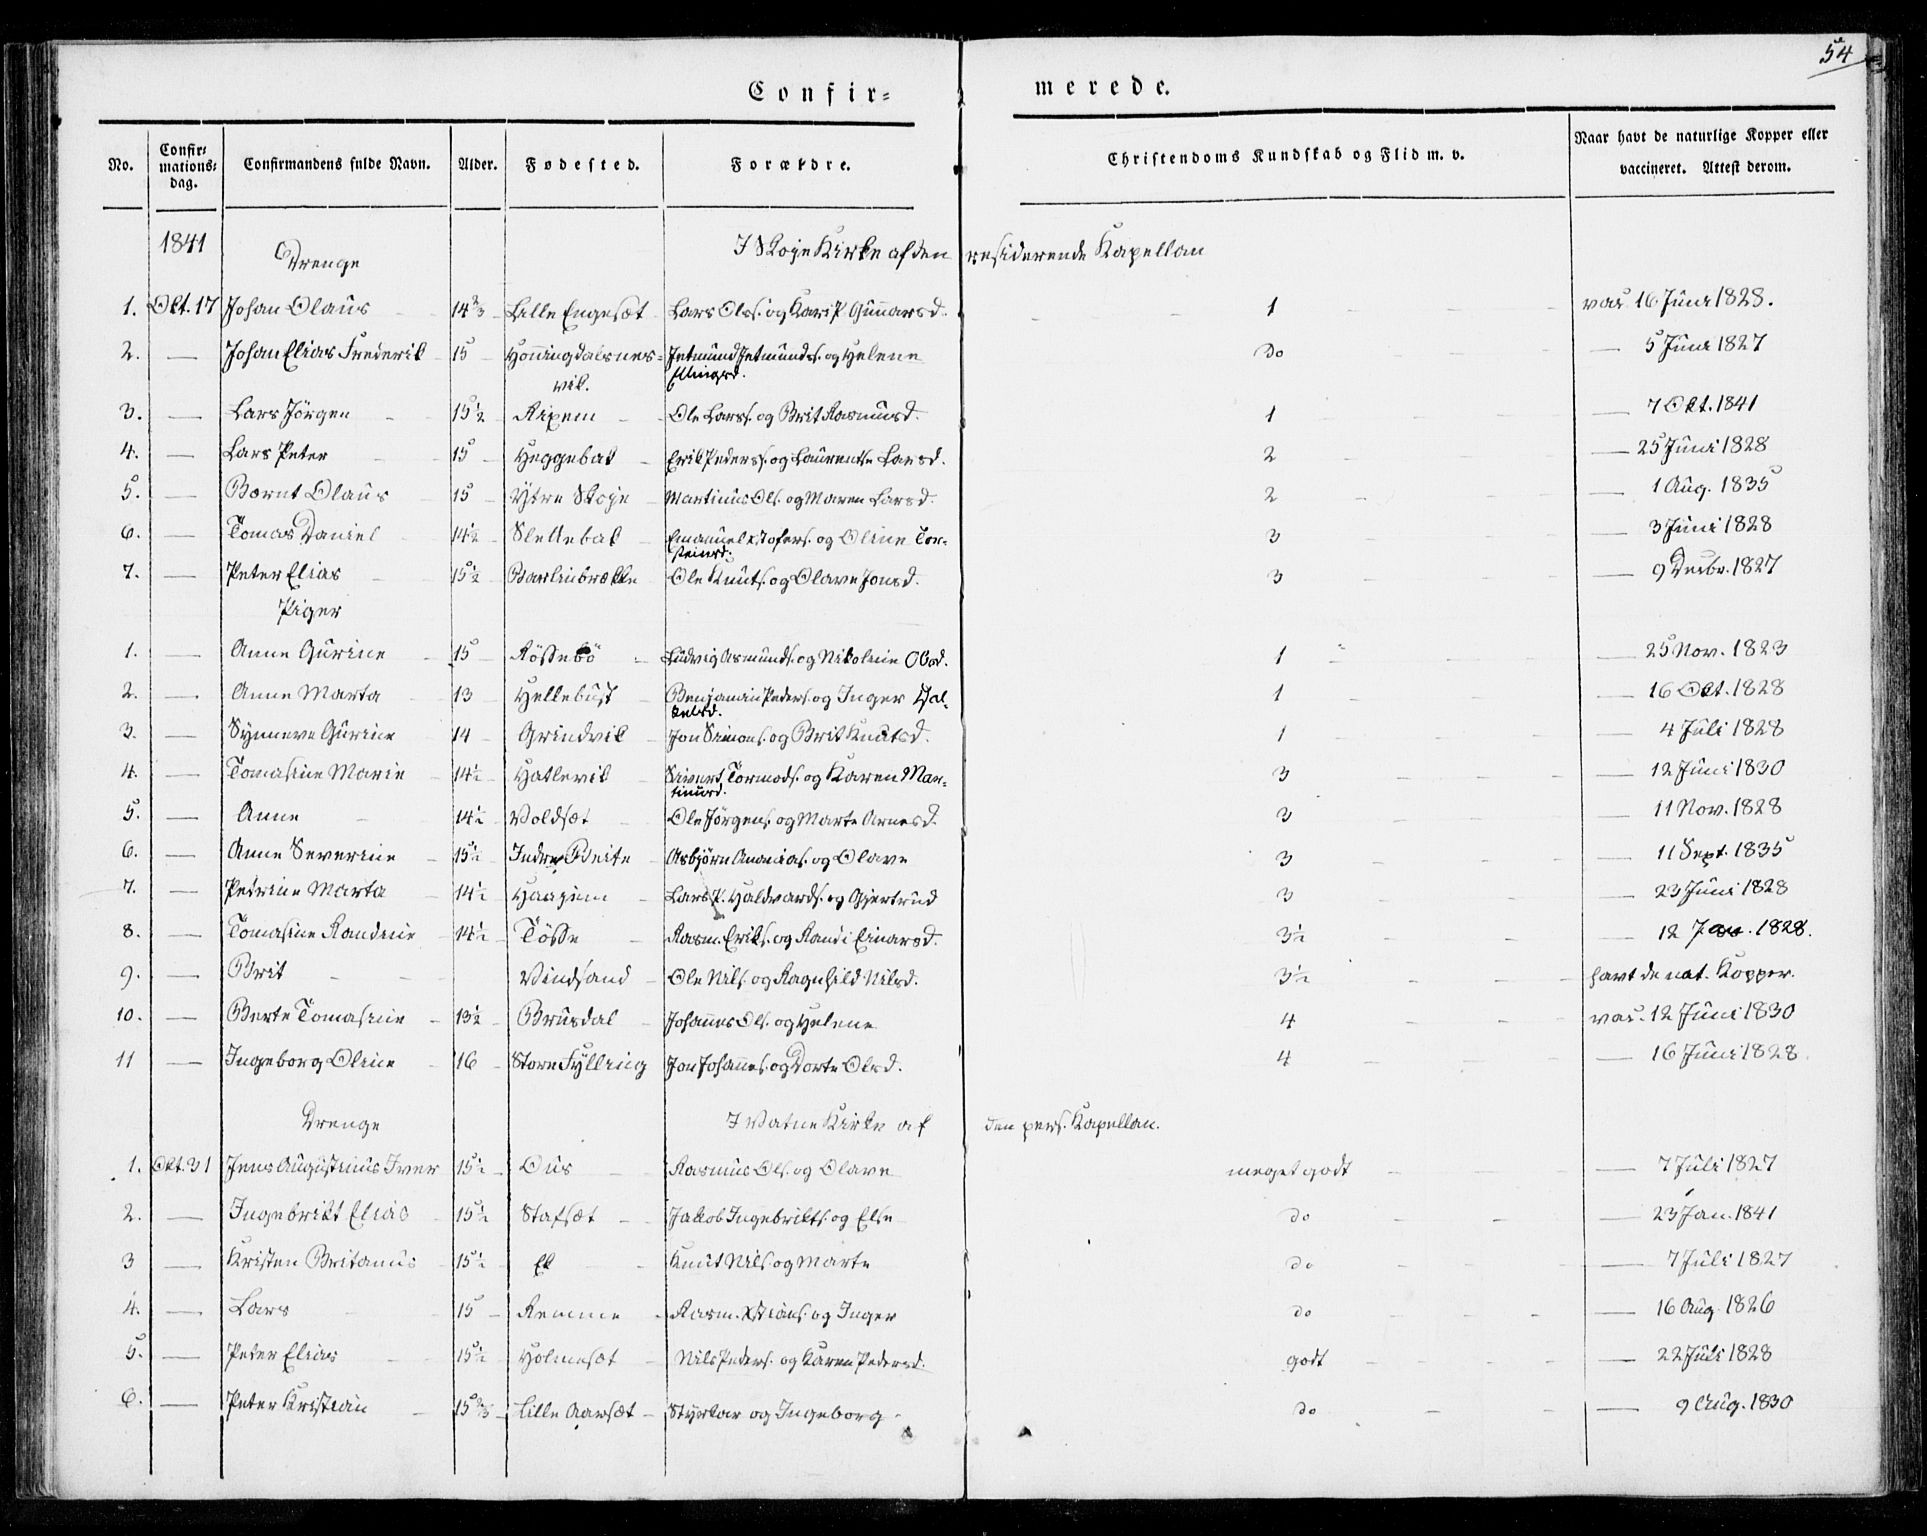 54
Confir=merede.
No. Confir=mations=dag. Confirmandens fulde Navn. Alder. Fødested. Forældre. Christendoms Kundskab og Flid m. v. Naar havt de naturlige Kopper eller vaccineret. Attest derom.
1841 Drenge I Skoje Kirke af den residerende Kapellan
1. Okt. 17 Johan Olaus 14 2/3 Lille Engesæt Lars Ols. og Kari P. Gunnarsd. 1 vac. 16 Juni 1828.
2. — Johan Elias Frederik 15 Honningdalsnes= Jetmund Jetmunds. og Helene do — 5 Juni 1827
vik. Ellingsd.
3. — Lars Jörgen 15 1/2 Rixem Ole Larss. og Brit Rasmusd. 1 — 7 Okt. 1841
4. — Lars Peter 15 Heggebak Erik Pederss. og Laurentse Larsd. 2 — 25 Juni 1828
5. — Bernt Olaus 15 Ytre Skoje Martinus Ols. og Maren Larsd. 2 — 1 Aug. 1835
6. — Tomas Daniel 14 1/2 Slettebak Emanuel Xstofers. og Oline Tor= 3 — 3 Juni 1828
steinsd.
7. — Peter Elias 15 1/2 Barlinbrække Ole Knuts. og Olave Jonsd. 3 — 9 Decbr. 1827
Piger
1. — Anne Gurine 15 Røssebö Ludvig Asmunds. og Nikoline Olsd. 1 — 25 Nov. 1823
2. — Anne Marta 13 Hellebust Benjamin Peders. og Inger 1 — 16 Okt. 1828
3. — Synneve Gurine 14 Grindvik Jon Simons. og Brit Knutsd. 1 — 4 Juli 1828
4. — Tomasine Marie 14 1/2 Hatlevik Sivert Tormods. og Karen Mar= 3 — 12 Juni 1830
tinusd.
5. — Anne 14 1/2 Voldsæt Ole Jörgens. og Marte Arnesd. 3 — 11 Nov. 1828
6. — Anne Severine 15 1/2 Indre Beite Asbjörn Ananias. og Olave 3 — 11 Sept. 1835
7. — Petrine Marta 14 1/2 Haagem Lars P. Haldvards. og Gjertrud 3 — 23 Juni 1828
8. — Tomasine Randine 14 1/2 Tösse Rasm. Eriks. og Randi Einarsd. 3 1/2 — 12 Jan. 1828.
9. — Brit Vindsand Ole Nils. og Ragnhild Nilsd. 3 1/2 havt de nat. Kopper.
10. — Berte Tomasine 13 1/2 Brusdal Johannes Ols. og Helene 4 vac. 12 Juni 1830
11 — Ingeborg Oline 16 Store Fylling Jon Johannes. og Dorte Olsd. 4 — 16 Juni 1828.
Drenge I Vatne Kirke af den pers. Kapellan.
1. Okt. 31 Jens Augustinus Iver 15 1/2 Ous Rasmus Ols. og Olave meget godt — 7 Juli 1827
2. — Ingebrikt Elias 15 1/2 Stafsæt Jakob Ingebrikts. og Else do — 23 Jan. 1841
3 — Kristen Britanus 15 1/2 Ek Knut Nils. og Marte do — 7 Juli 1827
4. — Lars 15 Remme Rasm. Xstians. og Inger do — 16 Aug. 1826
5. — Peter Elias 15 1/2 Holmesæt Nils Peders. og Karen Pedersd. godt — 22 Juli 1828
6. — Peter Kristian 15 2/3 Lille Aarsæt Styrkar og Ingeborg do — 9 Aug. 1830